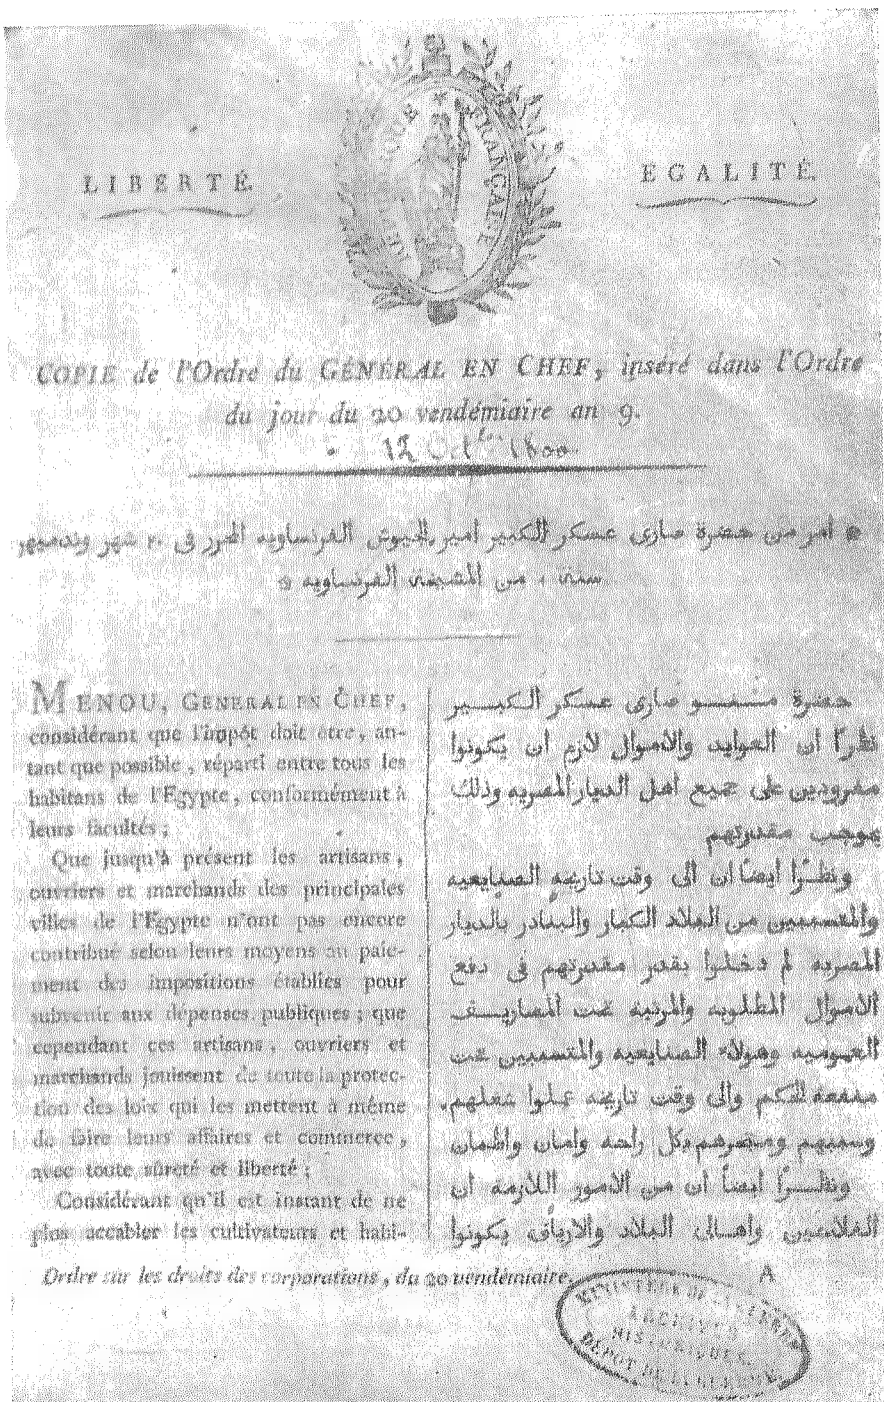 LIBERTÉ.
RÉPUBLIQUE FRANÇAISE
EGALITÉ.
COPIE de l'Ordre du GÉNÉRAL EN CHEF, inséré dans l'Ordre
du jour du 20 vendémiaire an 9.
12 Oct. 1800
امر من حضرة صارى عسكر الكبير امير الجيوش الفرنساويه المحرر فى ٢٠ شهر وندميير
سنة ٩ من المشيخة الفرنساويه
MENOU, GÉNÉRAL EN CHEF,
considérant que l'impôt doit être, au-
tant que possible, réparti entre tous les
habitans de l'Egypte, conformément à
leurs facultés;
Que jusqu'à présent les artisans,
ouvriers et marchands des principales
villes de l'Egypte n'ont pas encore
contribué selon leurs moyens au paie-
ment des impositions établies pour
subvenir aux dépenses publiques; que
cependant ces artisans, ouvriers et
marchands jouissent de toute la protec-
tion des loix qui les mettent à même
de faire leurs affaires et commerce,
avec toute sûreté et liberté;
Considérant qu'il est instant de ne
plus accabler les cultivateurs et habi-
حضرة منو صارى عسكر الكبير
نظرًا ان العوايد والاموال لازم ان يكونوا
مفرودين على جميع اهل الديار المصريه وذلك
بموجب مقدرتهم
ونظرًا ايضًا ان الى وقت تاريخه الصنايعيه
والمتسببين من البلاد الكبار والبنادر بالديار
المصريه لم دخلوا بقدر مقدرتهم فى دفع
الاموال المطلوبه والمرتبه تحت المصاريف
العموميه وهولاء الصنايعيه والمتسببين تحت
منفعة الحكم والى وقت تاريخه عملوا شغلهم
وسببهم ومتجرهم بكل راحه وامان واطمان
ونظرًا ايضًا ان من الامور اللازمه ان
الفلاحين واهالى البلاد والارياف يكونوا
Ordre sur les droits des corporations, du 20 vendémiaire.
A
MINISTÈRE DE LA GUERRE
ARCHIVES
HISTORIQUES
DÉPÔT DE LA GUERRE